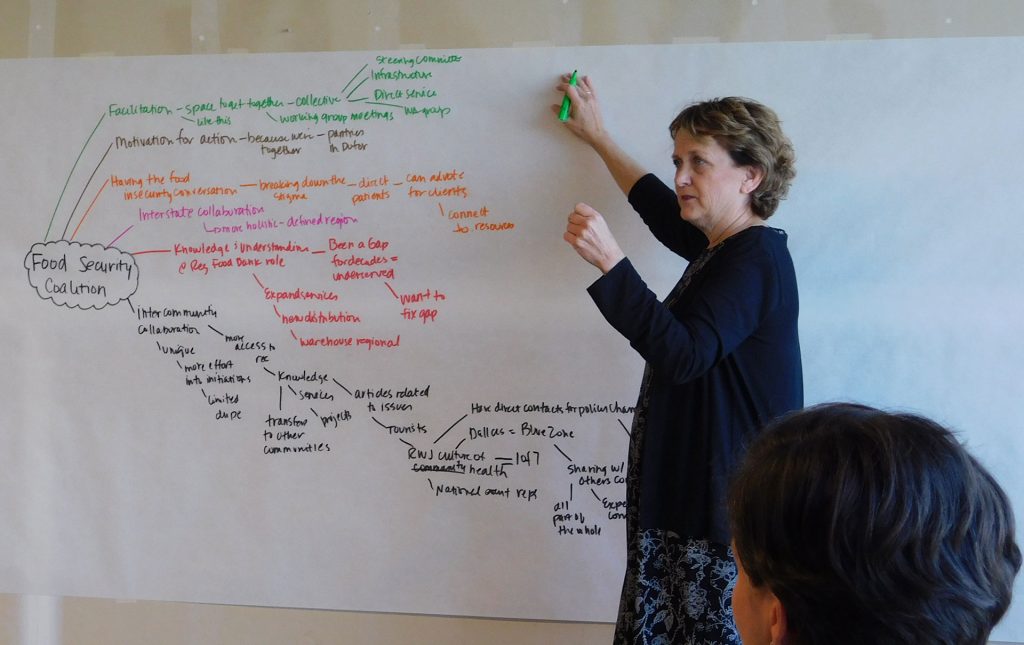 Steering Committee
Infrastructure
Facilitation - space to get together - collective
Direct Service
like this
working group meetings
Motivation for action - because we're - partner
together
Having the food
insecurity conversation - breaking down the - direct - can advote
stigma
patients
for clients
connect
to resources
Interstate collaboration
more holistic - defined region
Food Security
Coalition
Knowledge & Understanding - Been a Gap
@ Reg Food Bank role
for decades =
underserved
Expand services
want to
fix gap
new distribution
warehouse regional
Inter community
collaboration
unique
more
access to
rec
more effort
into initiations
limited
Knowledge
services
projects
articles related
to issues
transfer
to other
communities
Tourists
How direct contacts for policy chan
Dallas = Blue Zone
RWJ culture of = 1 of 7
community health
National grant reps
Sharing w/
others
all
part of
the whole